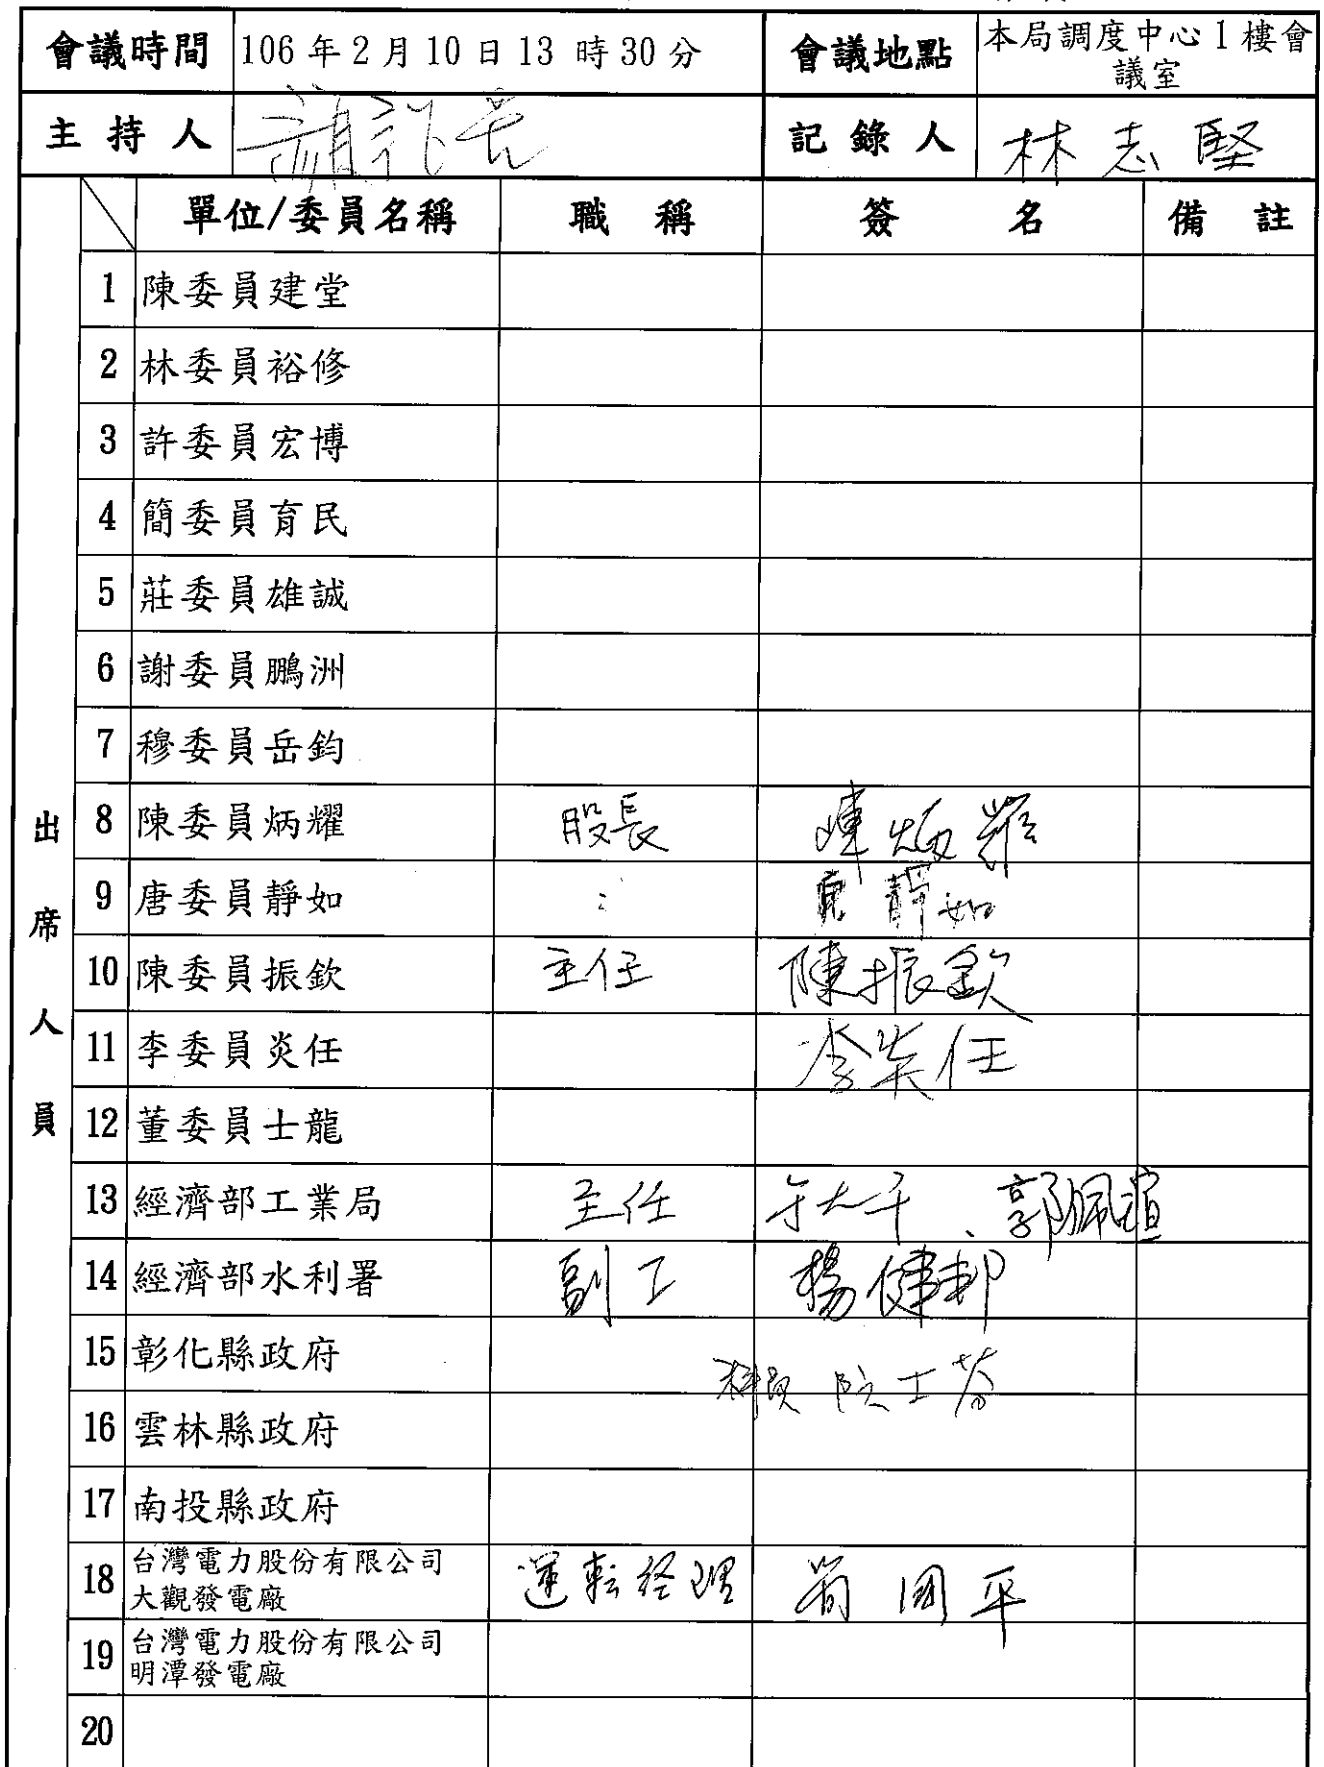 會議時間 106年2月10日13時30分 會議地點 本局調度中心1樓會
議室
主持人 記錄人 林志堅
單位/委員名稱 職稱 簽名 備註
出席人員
1 陳委員建堂
2 林委員裕修
3 許委員宏博
4 簡委員育民
5 莊委員雄誠
6 謝委員鵬洲
7 穆委員岳鈞
8 陳委員炳耀 股長 陳炳耀
9 唐委員靜如 唐靜如
10 陳委員振欽 主任 陳振欽
11 李委員炎任 李炎任
12 董委員士龍
13 經濟部工業局 主任 、郭珮瑄
14 經濟部水利署 副工 楊健邦
15 彰化縣政府 科員 阮士芬
16 雲林縣政府
17 南投縣政府
18 台灣電力股份有限公司
大觀發電廠 運転经理 國平
19 台灣電力股份有限公司
明潭發電廠
20